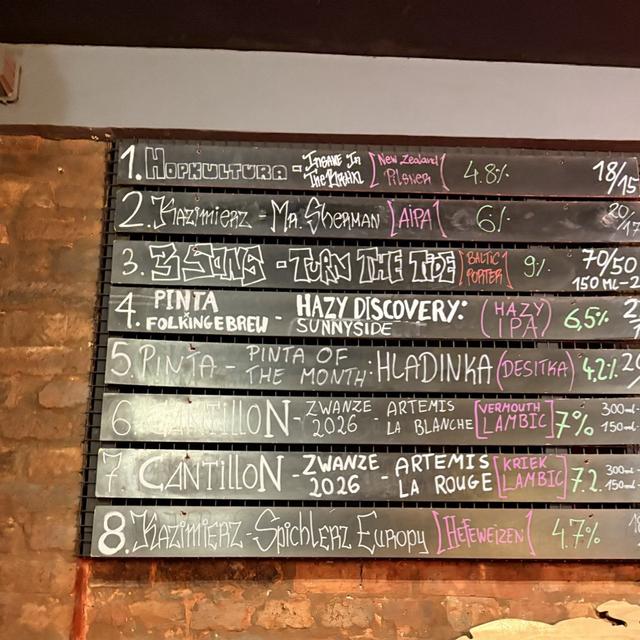 1. HOPKULTURA - INSANE IN THE [New Zealand PILSNER] 4.8% 18/15
2. KAZIMIERZ - MR. SHERMAN [AIPA] 6% 20/17
3. 3 SONS - TURN THE TIDE [BALTIC PORTER] 9% 70/50
150 ML-2
4. PINTA - HAZY DISCOVERY: (HAZY IPA) 6,5% 2
FOLKINGEBREW SUNNYSIDE
5. PINTA - PINTA OF THE MONTH: HLADINKA (DESITKA) 4,2%
6. CANTILLON - ZWANZE 2026 - ARTEMIS LA BLANCHE [VERMOUTH LAMBIC] 7% 300ml-
150ml-
7. CANTILLON - ZWANZE 2026 - ARTEMIS LA ROUGE [KRIEK LAMBIC] 7.2. 300ml-
150ml-
8. KAZIMIERZ - SPICHLERZ EUROPY [HEFEWEIZEN] 4.7%